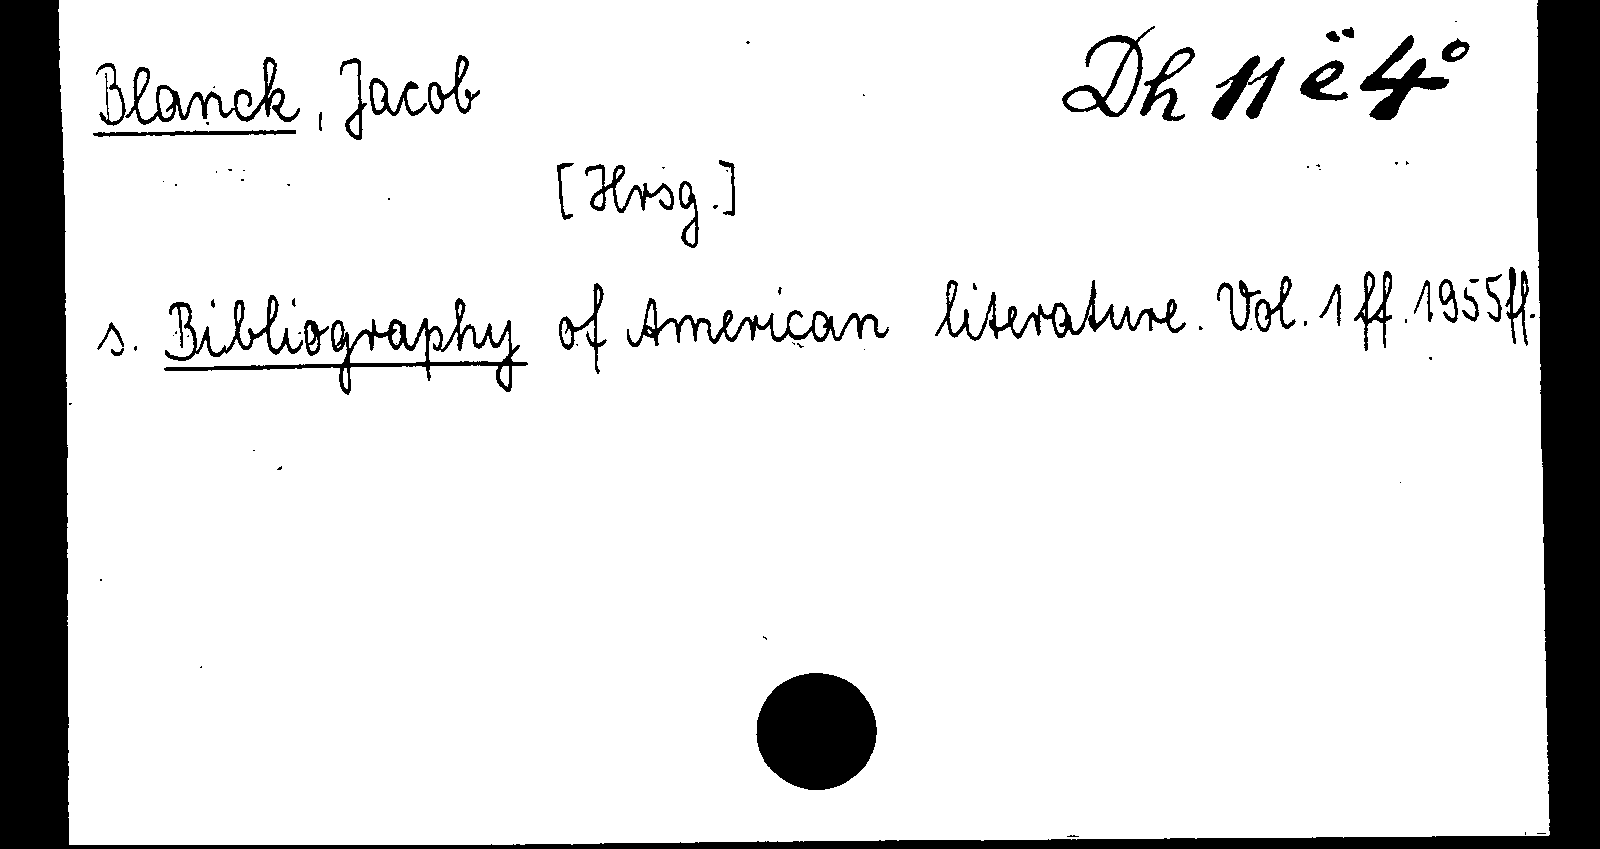 Blanck, Jacob
Dh 11 ë 4°
[Hrsg.]
s. Bibliography of American literature. Vol. 1 ff. 1955 ff.